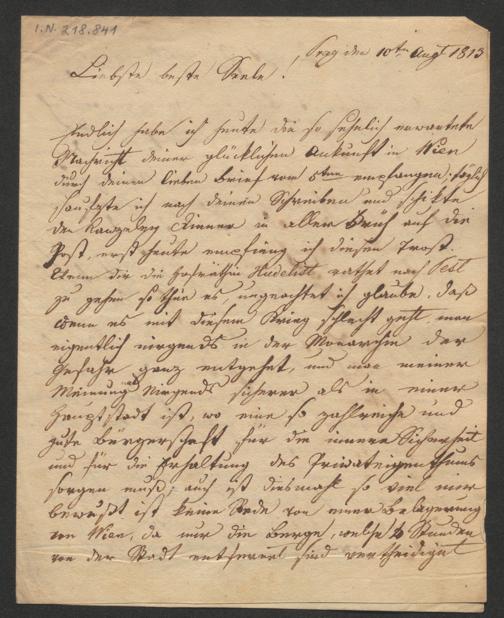 I.N. 218.841
Prag den 10ten Augt 1813
Liebste beste Seele!
Endlich habe ich heute die so sehnlich erwartete
Nachricht deiner glücklichen Ankunft in Wien
durch deinen lieben Brief vom 5ten empfangen, täglich
seufzte ich nach deinen Schreiben und schikte
den Kanzeley Diener in aller Früh auf die
Post, erst heute empfieng ich diesen Trost.
Wenn dir die Hofräthin Hudelist rathet nach Pest
zu gehen so thue es, ungeachtet ich glaube, daß
wenn es mit diesem Krieg schlecht geht man
eigentlich nirgends in der Monarchie der
Gefahr ganz entgehet, und man meiner
Meinung nach nirgends sicherer als in einer
Hauptstadt ist, wo eine so zahlreiche und
gute Bürgerschaft für die innere Sicherheit
und für die Erhaltung des Privateigenthums
sorgen muß, auch ist diesmahl so viel mir
bewußt ist keine Rede von einer Belagerung
von Wien, da nur die Berge, welche Stunden
von der Stadt entfernet sind vertheidiget